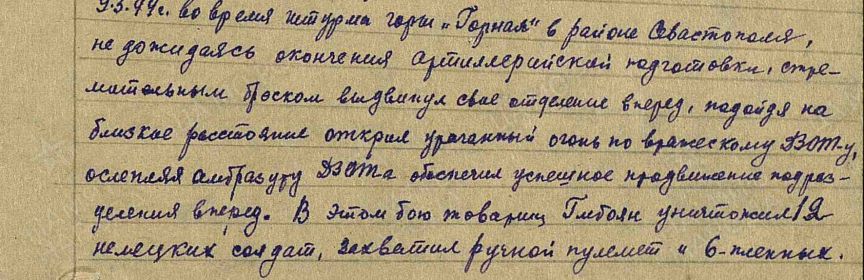 9.5.44г. во время штурма горы „Горная" в районе Севастополя,
не дожидаясь окончания артиллерийской подготовки, стре-
мительным броском выдвинул свое отделение вперед, подойдя на
близкое расстояние открыл ураганный огонь по вражескому ДЗОТ-у,
ослепляя амбразуру ДЗОТа обеспечил успешное продвижение подраз-
деления вперед. В этом бою товарищ уничтожил 12
немецких солдат, захватил ручной пулемет и 6-пленных.